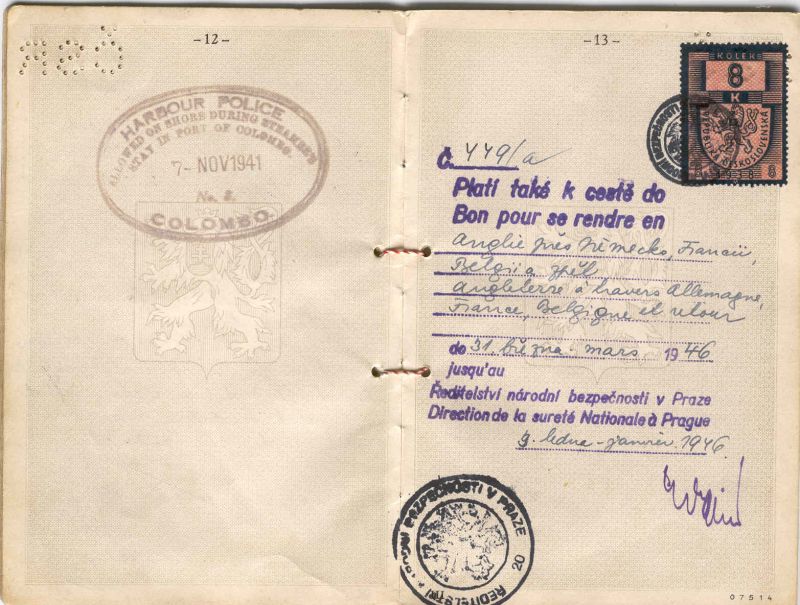 -12-
HARBOUR POLICE
ALLOWED ON SHORE DURING STEAMER'S
STAY IN PORT OF COLOMBO.
7- NOV 1941
No. 2.
COLOMBO
-13-
KOLEK
8
K
REPUBLIKA ČESKOSLOVENSKÁ
8 1938 8
Č. 449/a
Platí také k cestě do
Bon pour se rendre en
Anglie přes Německo, Francii,
Belgii a zpět
Angleterre à travers Allemagne,
France, Belgique et retour
do 31. března - mars 1946
jusqu'au
Ředitelství národní bezpečnosti v Praze
Direction de la sureté Nationale à Prague
9. ledna - janvier 1946
ŘEDITELSTVÍ NÁRODNÍ BEZPEČNOSTI V PRAZE
20
07514